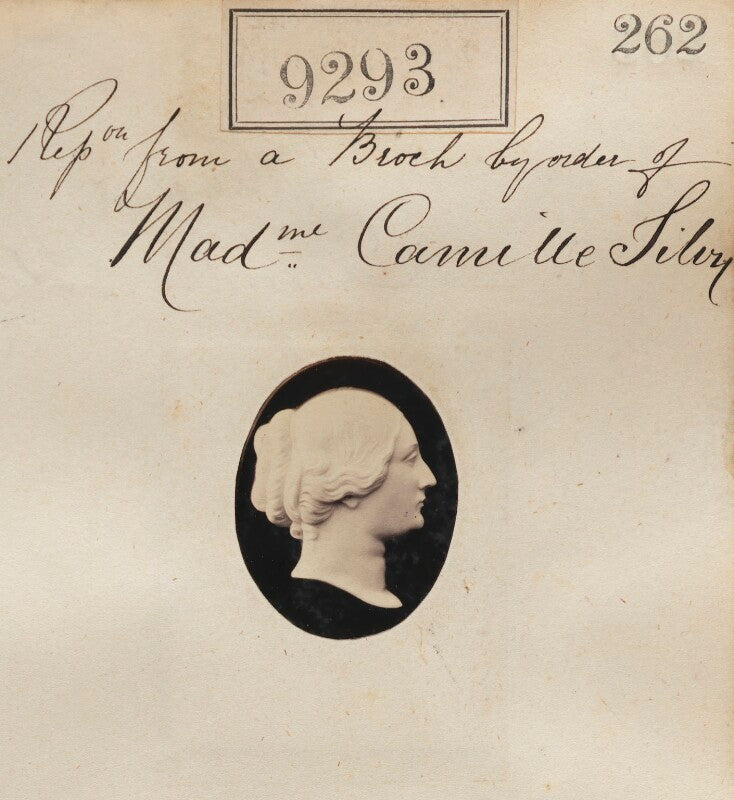 9293
262
Repon from a Broch by order of
Madme Camille Silvy